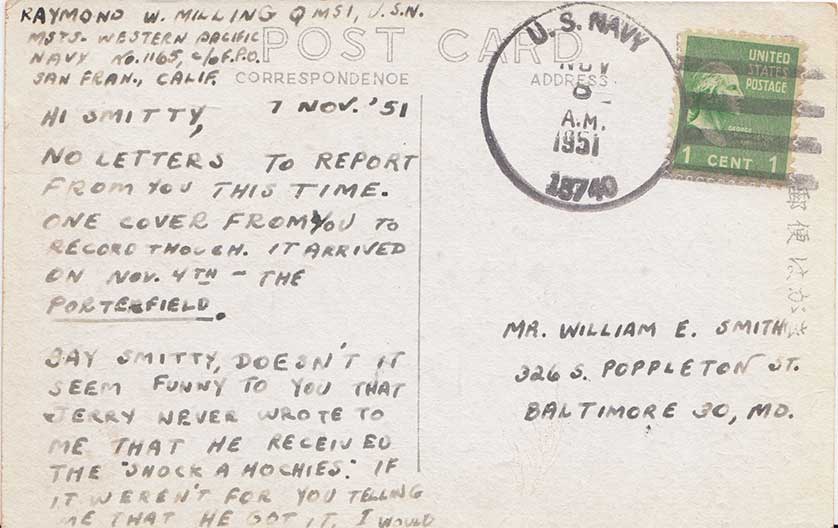 RAYMOND W. MILLING QMS1, U.S.N.
MSTS. WESTERN PACIFIC
NAVY No. 1165, c/o F.P.O.
SAN FRAN., CALIF.
POST CARD
CORRESPONDENCE
ADDRESS
HI SMITTY, 7 NOV. '51
NO LETTERS TO REPORT
FROM YOU THIS TIME.
ONE COVER FROM YOU TO
RECORD THOUGH. IT ARRIVED
ON NOV. 4TH - THE
PORTERFIELD.
SAY SMITTY, DOESN'T IT
SEEM FUNNY TO YOU THAT
JERRY NEVER WROTE TO
ME THAT HE RECEIVED
THE "SHOCK A HOCHIES." IF
IT WEREN'T FOR YOU TELLING
ME THAT HE GOT IT, I WOULD
U.S. NAVY
NOV
A.M.
1951
UNITED
STATES
POSTAGE
GEORGE
1 CENT 1
郵便はがき
MR. WILLIAM E. SMITH
326 S. POPPLETON ST.
BALTIMORE 30, MD.